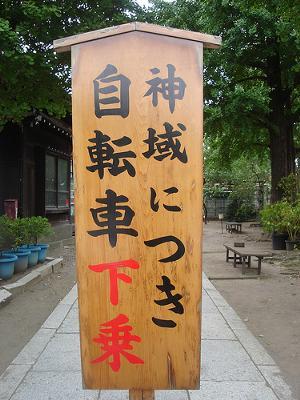 神域につき
自転車下乗